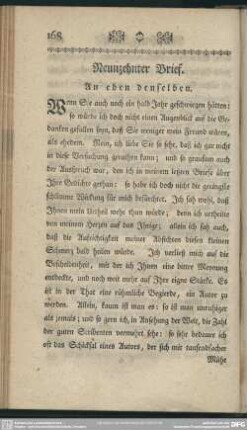 168
Neunzehnter Brief.
An eben denselben.
Wenn Sie auch noch ein halb Jahr geschwiegen hätten:
so würde ich doch nicht einen Augenblick auf die Ge-
danken gefallen seyn, daß Sie weniger mein Freund wären,
als ehedem. Nein, ich liebe Sie so sehr, daß ich gar nicht
in diese Versuchung gerathen kann; und so grausam auch
der Ausspruch war, den ich in meinem letzten Briefe über
Ihre Gedichte gethan: so habe ich doch nicht die geringste
schlimme Wirkung für mich befürchtet. Ich sah wohl, daß
Ihnen mein Urtheil wehe thun würde; denn ich urtheilte
von meinem Herzen auf das Ihrige; allein ich sah auch,
daß die Aufrichtigkeit meiner Absichten diesen kleinen
Schmerz bald heilen würde. Ich verließ mich auf die
Bescheidenheit, mit der ich Ihnen eine bittre Meynung
entdeckte, und noch weit mehr auf Ihre eigne Stärke. Es
ist in der That eine rühmliche Begierde, ein Autor zu
werden. Allein, kaum ist man es: so ist man unruhiger
als jemals; und so gern ich, in Ansehung der Welt, die Zahl
der guten Scribenten vermehrt sehe: so sehr bedaure ich
oft das Schicksal eines Autors, der sich mit tausendfacher
Mühe